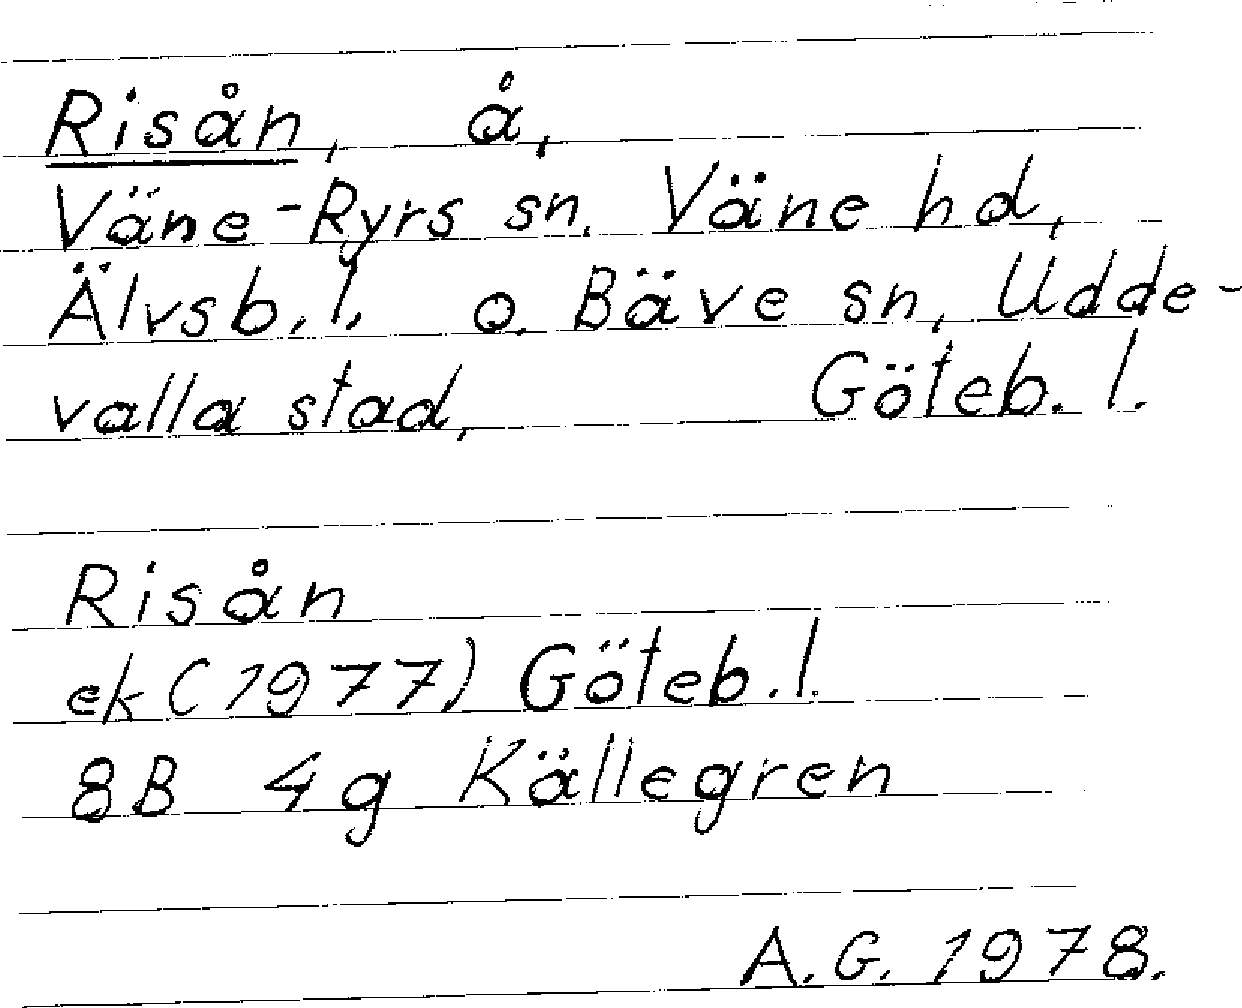 Risån, å,
Väne-Ryrs sn. Väne hd,
Älvsb. l. o. Bäve sn, Udde-
valla stad, Göteb. l.
Risån
ek (1977) Göteb. l.
8B 4g Källegren
A. G. 1978.